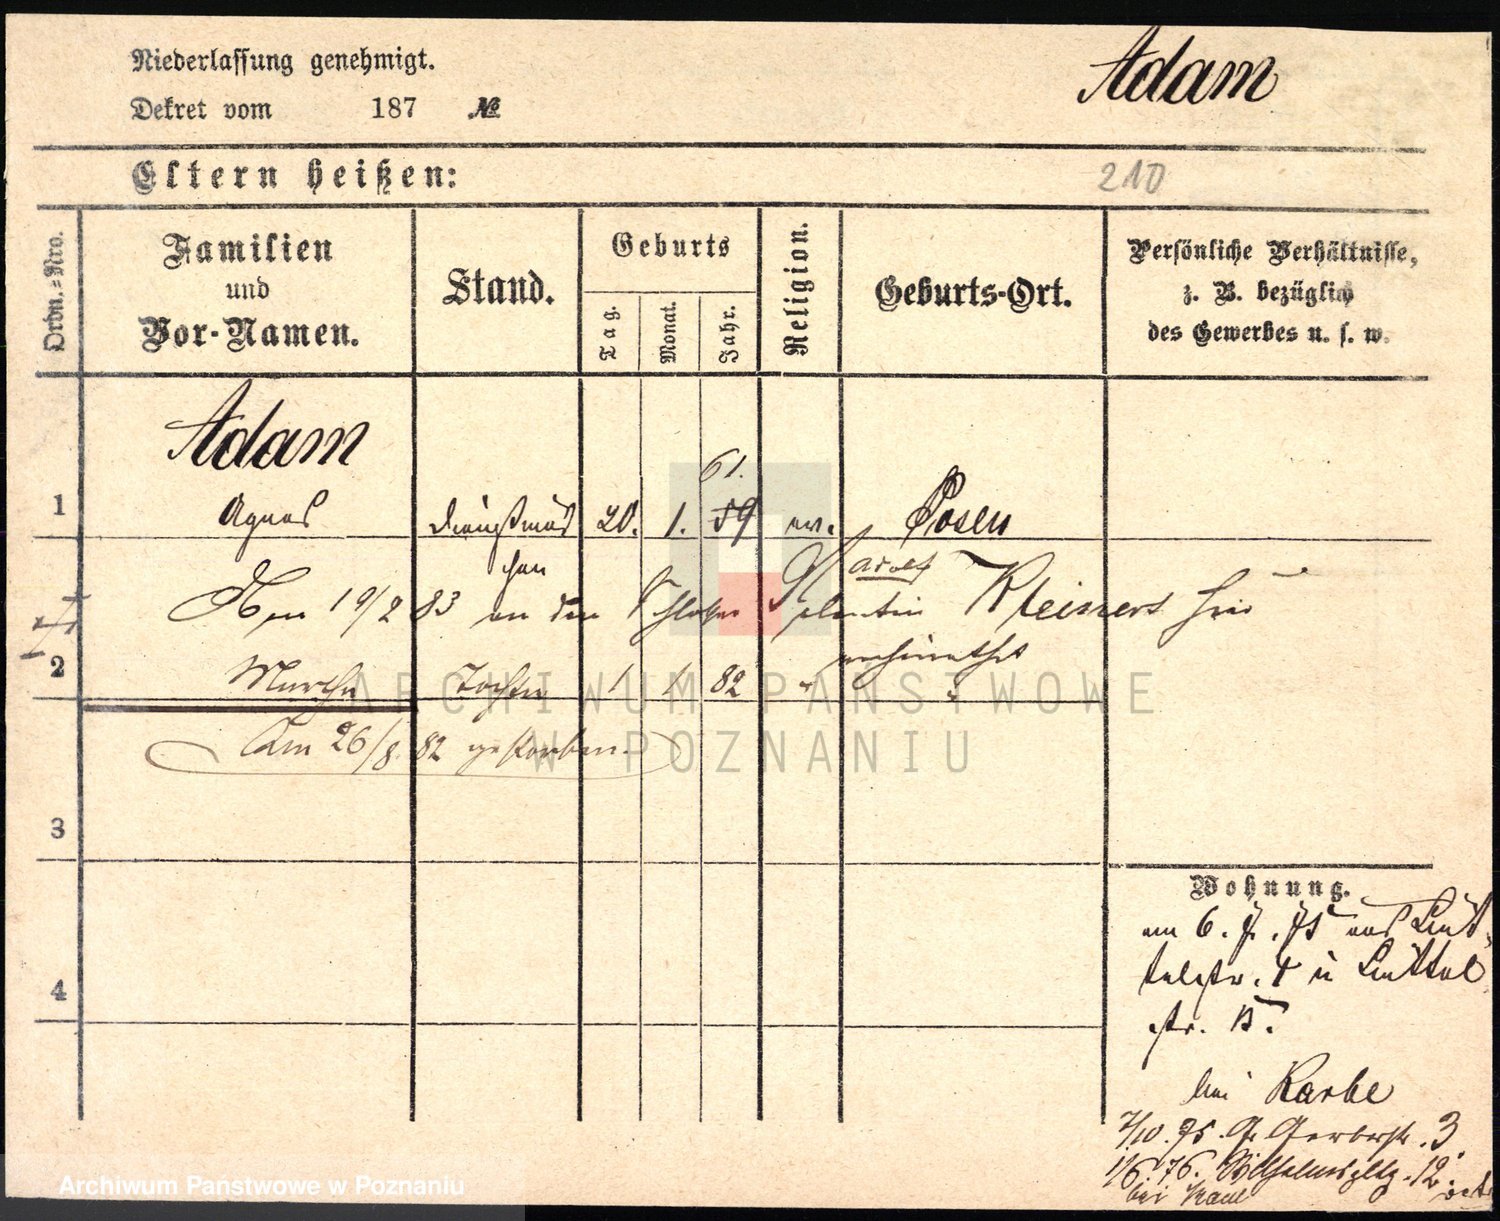 Niederlassung genehmigt.
Dekret vom 187 №
Adam
Eltern heißen:
210
Ordn.=Nro.
Familien
und
Vor-Namen.
Stand.
Geburts
Tag.
Monat.
Jahr.
Religion.
Geburts-Ort.
Persönliche Verhältnisse,
z. B. bezüglich
des Gewerbes u. s. w.
Adam
61.
1 Agnes Dienstmäd 20. 1. 59 ev. Posen
chen
Adolf
19/2 83 an den Schlosser Valentin Kleinert hier
verheirathet
2 Martha Tochter 1 1 82 " "
Am 26/8. 82 gestorben.
3
4
Wohnung.
am 6. 7. 75 aus
str. 15.
bei Karbe
7/10. 75. Gr. Gerberstr. 3
1/6. 76. Wilhelmsplatz. 12.
bei
ARCHIWUM PAŃSTWOWE
W POZNANIU
Archiwum Państwowe w Poznaniu